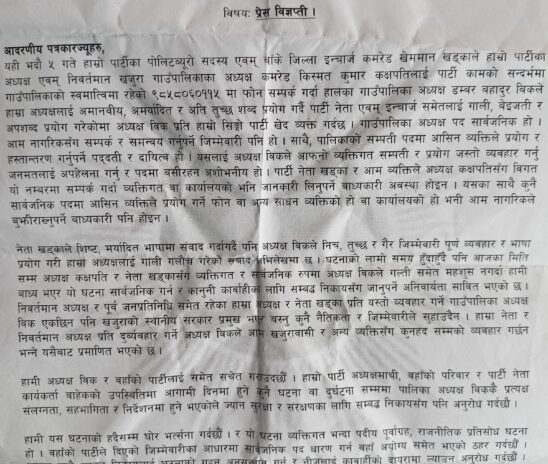 विषय: प्रेस विज्ञप्ती ।
आदरणीय पत्रकारज्यूहरु,
यही भदौ ५ गते हाम्रो पार्टीका पोलिटब्यूरो सदस्य एवम् बाँके जिल्ला इन्चार्ज कमरेड खेममान खड्काले हाम्रो पार्टीका
अध्यक्ष एवम् निवर्तमान खजुरा गाउँपालिकाका अध्यक्ष कमरेड किस्मत कुमार कक्षपतिलाई पार्टी कामको सन्दर्भमा
गाउँपालिकाको स्वमात्विमा रहेको ९८५८०६०११५ मा फोन सम्पर्क गर्दा हालका गाउँपालिका अध्यक्ष डम्बर बहादुर विकले
हाम्रा अध्यक्षलाई अमानवीय, अमर्यादित र अति तुच्छ शब्द प्रयोग गर्दै पार्टी नेता एवम् इन्चार्ज समेतलाई गाली, बेइजती र
अपशब्द प्रयोग गरेकोमा अध्यक्ष विक प्रति हाम्रो सिङ्गो पार्टी खेद व्यक्त गर्दछ । गाउँपालिका अध्यक्ष पद सार्वजनिक हो ।
आम नागरिकसँग सम्पर्क र समन्वय गर्नुपर्ने जिम्मेवारी पनि हो । साथै, पालिकाको सम्पती पदमा आसिन व्यक्तिले प्रयोग र
हस्तान्तरण गर्नुपर्ने पद्दती र दायित्व हो । यसलाई अध्यक्ष विकले आफनो व्यक्तिगत सम्पती र प्रयोग जस्तो व्यवहार गर्नु
जनमतलाई अपहेलना गर्नु र पदमा बसीरहन अशोभनीय हो । पार्टी नेता खड्का र आम व्यक्तिले अध्यक्ष कक्षपतिसँग बिगत
यो नम्बरमा सम्पर्क गर्दा व्यक्तिगत वा कार्यालयको भनि जानकारी लिनुपर्ने बाध्यकारी अवस्था होइन । यसका साथै कुनै
सार्वजनिक पदमा आसिन व्यक्तिले प्रयोग गर्ने फोन वा अन्य साधन व्यक्तिको हो वा कार्यालयको हो भनी आम नागरिकले
बुझीराख्नुपर्ने बाध्यकारी पनि होइन ।
नेता खड्काले शिष्ट, मर्यादित भाषामा संवाद गर्दागर्दै पनि अध्यक्ष विकले निच, तुच्छ र गैर जिम्मेवारी पूर्ण व्यवहार र भाषा
प्रयोग गरी हाम्रा अध्यक्षलाई गाली गलौच गरेको संवाद अभिलेखमा छ । घटनाको लामो समय हुँदाहुँदै पनि आजका मिति
सम्म अध्यक्ष कक्षपति र नेता खड्कासँग व्यक्तिगत र सार्वजनिक रुपमा अध्यक्ष विकले गल्ती समेत महशुस नगर्दा हामी
बाध्य भएर यो घटना सार्वजनिक गर्न र कानुनी कार्वाहीका लागि सम्बद्ध निकायसँग जानुपर्ने अनिवार्यता साबित भएको छ ।
निवर्तमान अध्यक्ष र पूर्व जनप्रतिनिधि समेत रहेका हाम्रा अध्यक्ष र नेता खड्का प्रति यस्तो व्यवहार गर्ने गाउँपालिका अध्यक्ष
विक एकछिन पनि खजुराको स्थानीय सरकार प्रमुख भएर बस्नु कुनै नैतिकता र जिम्मेवारीले सुहाउदैन । हाम्रा नेता र
निवर्तमान अध्यक्ष प्रति दुर्व्यवहार गर्ने अध्यक्ष विकले आम खजुरावासी र अन्य व्यक्तिसँग कुनहद सम्मको व्यवहार गर्छन
भन्ने यसैबाट प्रमाणित भएको छ ।
हामी अध्यक्ष विक र वहाँको पार्टीलाई समेत सचेत गराउदछौं । हाम्रो पार्टी अध्यक्षमाथी, वहाँको परिवार र पार्टी नेता
कार्यकर्ता बाहेकको उपस्थितिमा आगामी दिनमा हुने कुनै घटना वा दुर्घटना सम्ममा पालिका अध्यक्ष विककै प्रत्यक्ष
संलग्नता, सहभागिता र निर्देशनमा हुने भएकोले ज्यान सुरक्षा र संरक्षणका लागि सम्बद्ध निकायसँग पनि अनुरोध गर्दछौं ।
हामी यस घटनाको हदैसम्म घोर भर्त्सना गर्दछौं । र यो घटना व्यक्तिगत भन्दा पदीय पूर्वाग्रह, राजनीतिक प्रतिसोध घटना
हो । वहाँको पार्टीले दिएको जिम्मेवारीका आधारमा सार्वजनिक पद धारण गर्न वहाँ अयोग्य समेत भएको ठहर गर्दछौं ।